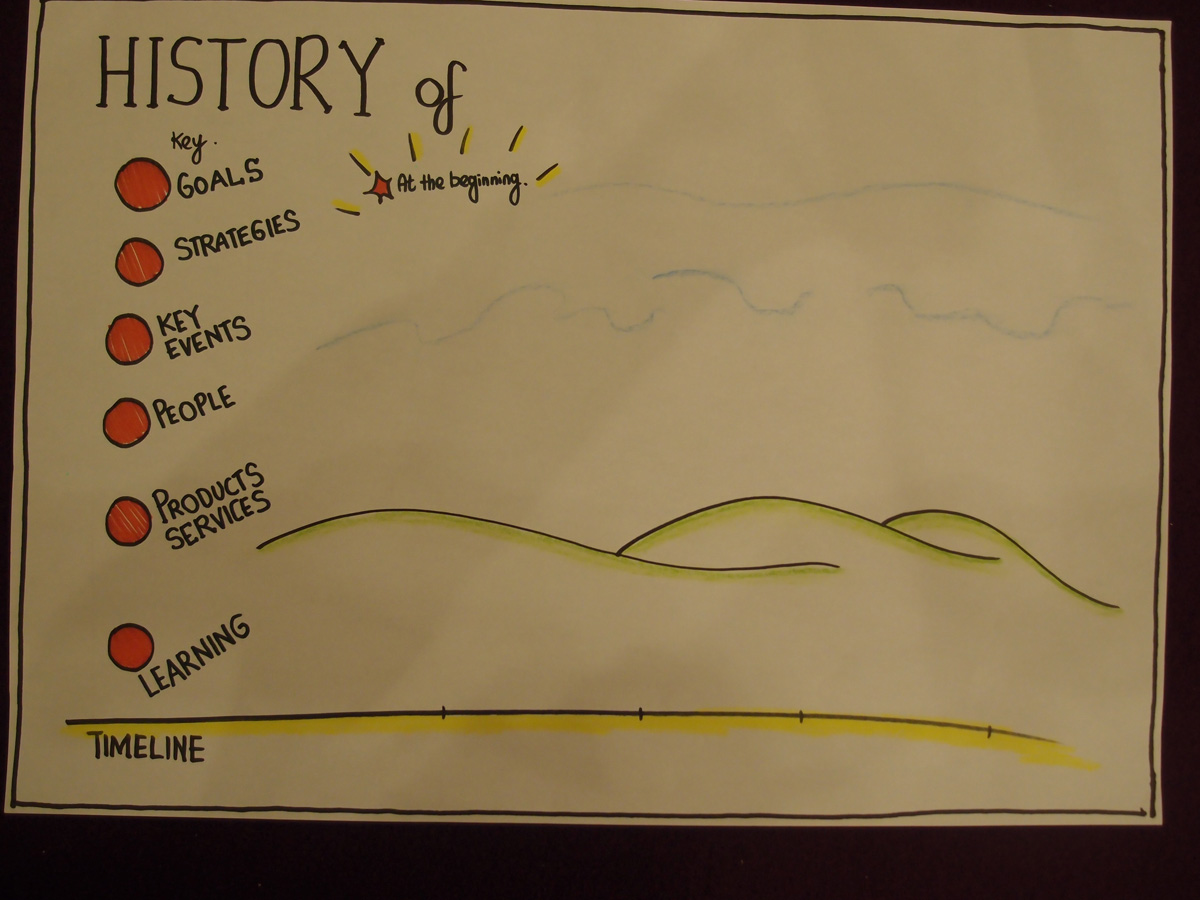 HISTORY of
Key.
GOALS
At the beginning.
STRATEGIES
KEY
EVENTS
PEOPLE
PRODUCTS
SERVICES
LEARNING
TIMELINE